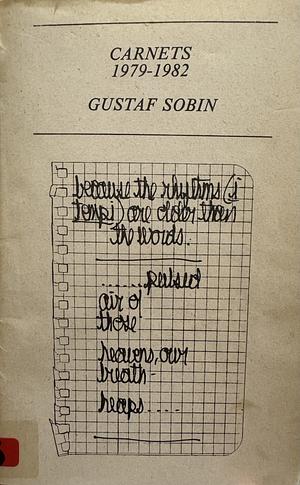 CARNETS
1979-1982
GUSTAF SOBIN
because the rhythms (is
temps) are older than
the words.
........pulsed
air of
those
heavens, our
breath-
heaps.....